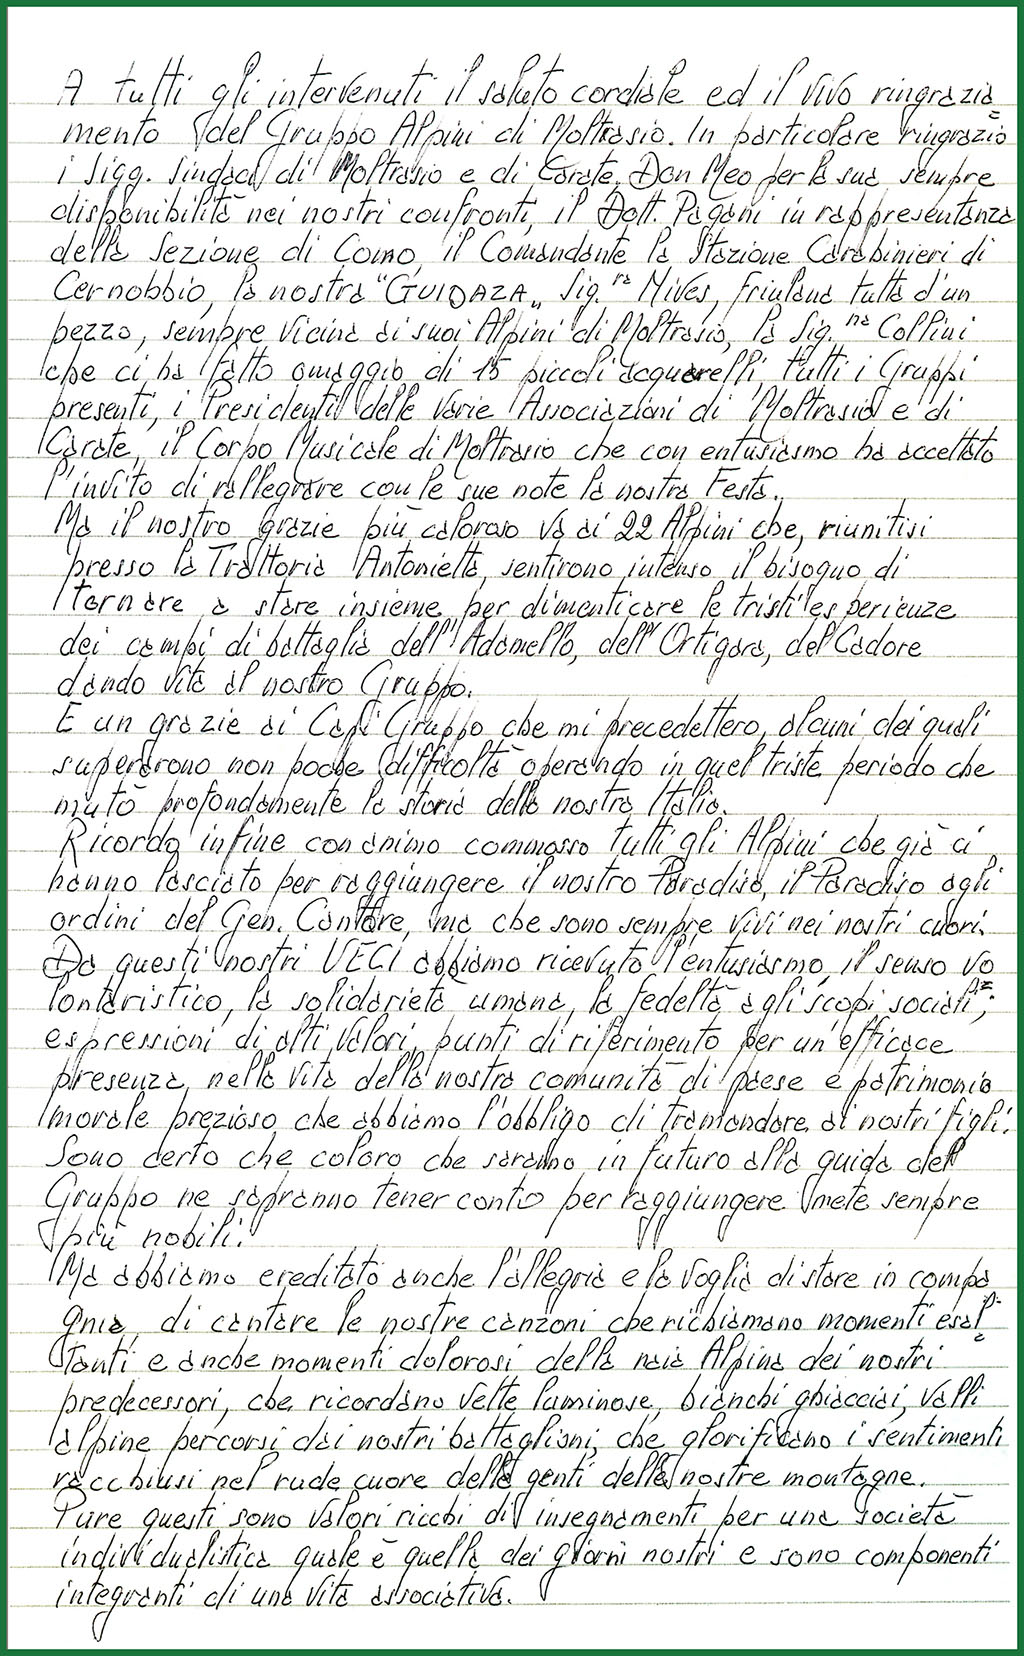 A tutti gli intervenuti il saluto cordiale ed il vivo ringrazia
mento del Gruppo Alpini di Moltrasio. In particolare ringrazio
i Sigg. Sindaci di Moltrasio e di Carate, Don Meo per la sua sempre
disponibilità nei nostri confronti, il Dott. Pagani in rappresentanza
della Sezione di Como, il Comandante la Stazione Carabinieri di
Cernobbio, la nostra "GUIDAZA„ Sig.ra Nives, friulana tutta d'un
pezzo, sempre vicina ai suoi Alpini di Moltrasio, la Sig.na Collini
che ci ha fatto omaggio di 15 piccoli acquarelli, tutti i Gruppi
presenti, i Presidenti delle varie Associazioni di Moltrasio e di
Carate, il Corpo Musicale di Moltrasio che con entusiasmo ha accettato
l'invito di rallegrare con le sue note la nostra Festa.
Ma il nostro grazie più caloroso va ai 22 Alpini che, riunitisi
presso la Trattoria Antonietta, sentirono intenso il bisogno di
tornare a stare insieme per dimenticare le tristi esperienze
dei campi di battaglia dell'Adamello, dell'Ortigara, del Cadore
dando vita al nostro Gruppo.
E un grazie ai Capi Gruppo che mi precedettero, alcuni dei quali
superarono non poche difficoltà operando in quel triste periodo che
mutò profondamente la storia della nostra Italia.
Ricordo infine con animo commosso tutti gli Alpini che già ci
hanno lasciato per raggiungere il nostro Paradiso, il Paradiso agli
ordini del Gen. Cantore, ma che sono sempre vivi nei nostri cuori.
Da questi nostri VECI abbiamo ricevuto l'entusiasmo, il senso vo
lontaristico, la solidarietà umana, la fedeltà agli scopi sociali;
espressioni di alti valori, punti di riferimento per un'efficace
presenza nella vita della nostra comunità di paese e patrimonio
morale prezioso che abbiamo l'obbligo di tramandare ai nostri figli.
Sono certo che coloro che saranno in futuro alla guida del
Gruppo ne sapranno tener conto per raggiungere mete sempre
più nobili.
Ma abbiamo ereditato anche l'allegria e la voglia di stare in compa
gnia, di cantare le nostre canzoni che richiamano momenti esal
tanti e anche momenti dolorosi della naia Alpina dei nostri
predecessori, che ricordano vette luminose, bianchi ghiacciai, valli
alpine percorsi dai nostri battaglioni, che glorificano i sentimenti
racchiusi nel rude cuore della genti delle nostre montagne.
Pure questi sono valori ricchi di insegnamenti per una società
individualistica quale è quella dei giorni nostri e sono componenti
integranti di una vita associativa.